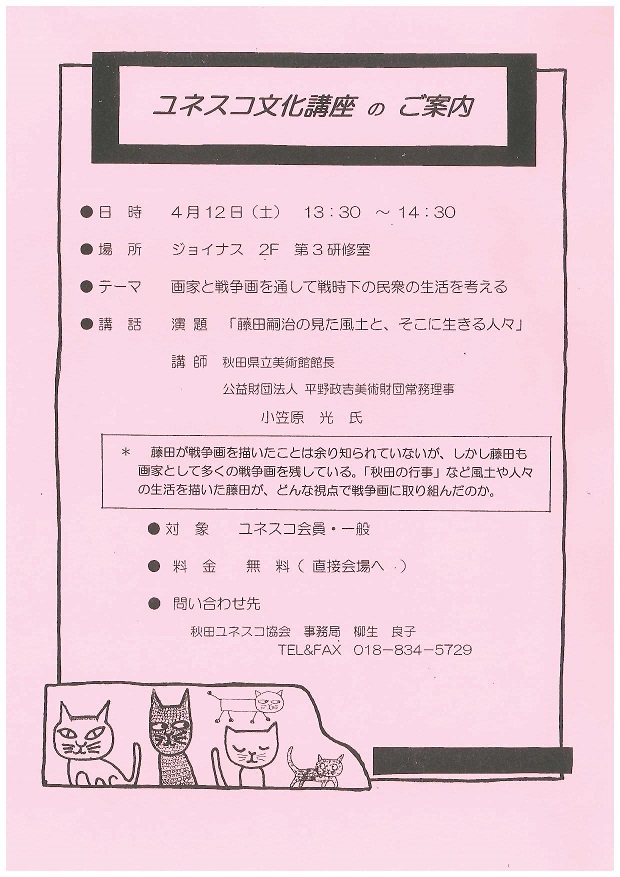 ユネスコ文化講座 の ご案内
●日 時 4月12日(土) 13:30 ~14:30
●場 所 ジョイナス 2F 第3研修室
●テーマ 画家と戦争画を通して戦時下の民衆の生活を考える
●講 話 演 題 「藤田嗣治の見た風土と、そこに生きる人々」
講 師 秋田県立美術館館長
公益財団法人 平野政吉美術財団常務理事
小笠原 光 氏
* 藤田が戦争画を描いたことは余り知られていないが、しかし藤田も
画家として多くの戦争画を残している。「秋田の行事」など風土や人々
の生活を描いた藤田が、どんな視点で戦争画に取り組んだのか。
●対 象 ユネスコ会員・一般
● 料 金 無 料( 直接会場へ )
● 問い合わせ先
秋田ユネスコ協会 事務局 柳生 良子
TEL&FAX 018-834-5729